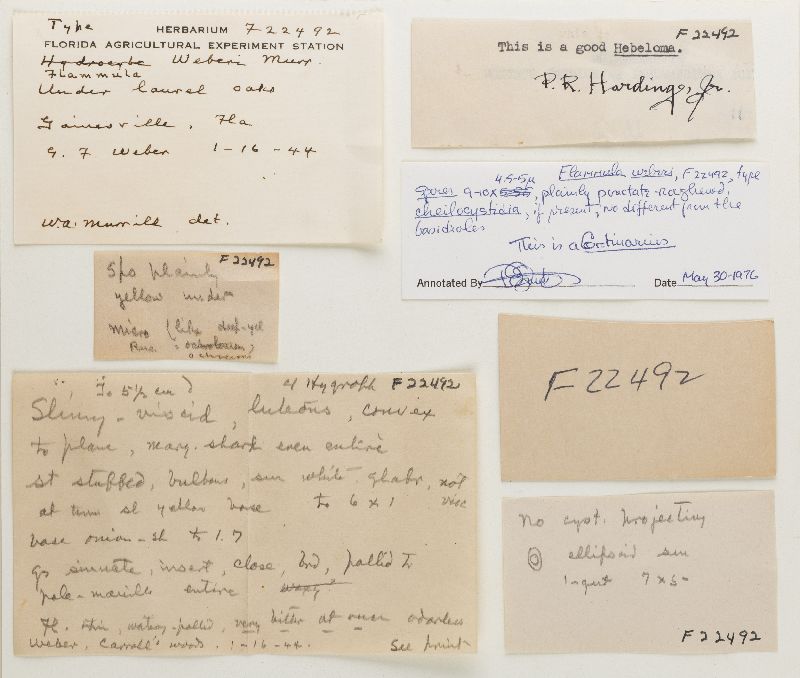 Type HERBARIUM F22492
FLORIDA AGRICULTURAL EXPERIMENT STATION
Hydrocybe Weberi Murr.
Flammula
Under laurel oaks
Gainesville, Fla
G. F Weber 1-16-44
W.A. Murrill det.
F 22492
This is a good Hebeloma.
P.R. Hardinge, Jr.
Flammula weberi, F22492, type
4.5-5µ
spores 9-10x , plainly punctate-roughened,
cheilocystidia, if present, no different from the
basidioles
This is a Cortinarius
Annotated By Date May 30-1976
F 22492
Spo plainly
yellow under
micro (like deep-yel
Rus.
ochroleuca)
F 22492
to 5 1/2 cm) of Hygroph F 22492
Slimy-viscid, luteous, convex
to plane, marg. sharp even entire
st stuffed, bulbous, sm white glabr, not
at times sl yellow base to 6 x 1 visc
base onion-sh to 1.7
gs sinuate, insert, close, brd, pallid to
pale-marille entire waxy
Fl. thin, watery-pallid, very bitter at once odorless
Weber, Carroll's woods. 1-16-44. See print
no cyst. projecting
ellipsoid sm
1-gut 7x5-
F 22492